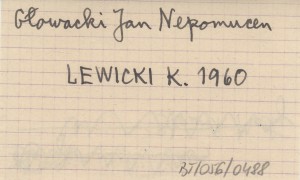 Głowacki Jan Nepomucen
LEWICKI K. 1960
BJ/056/0488